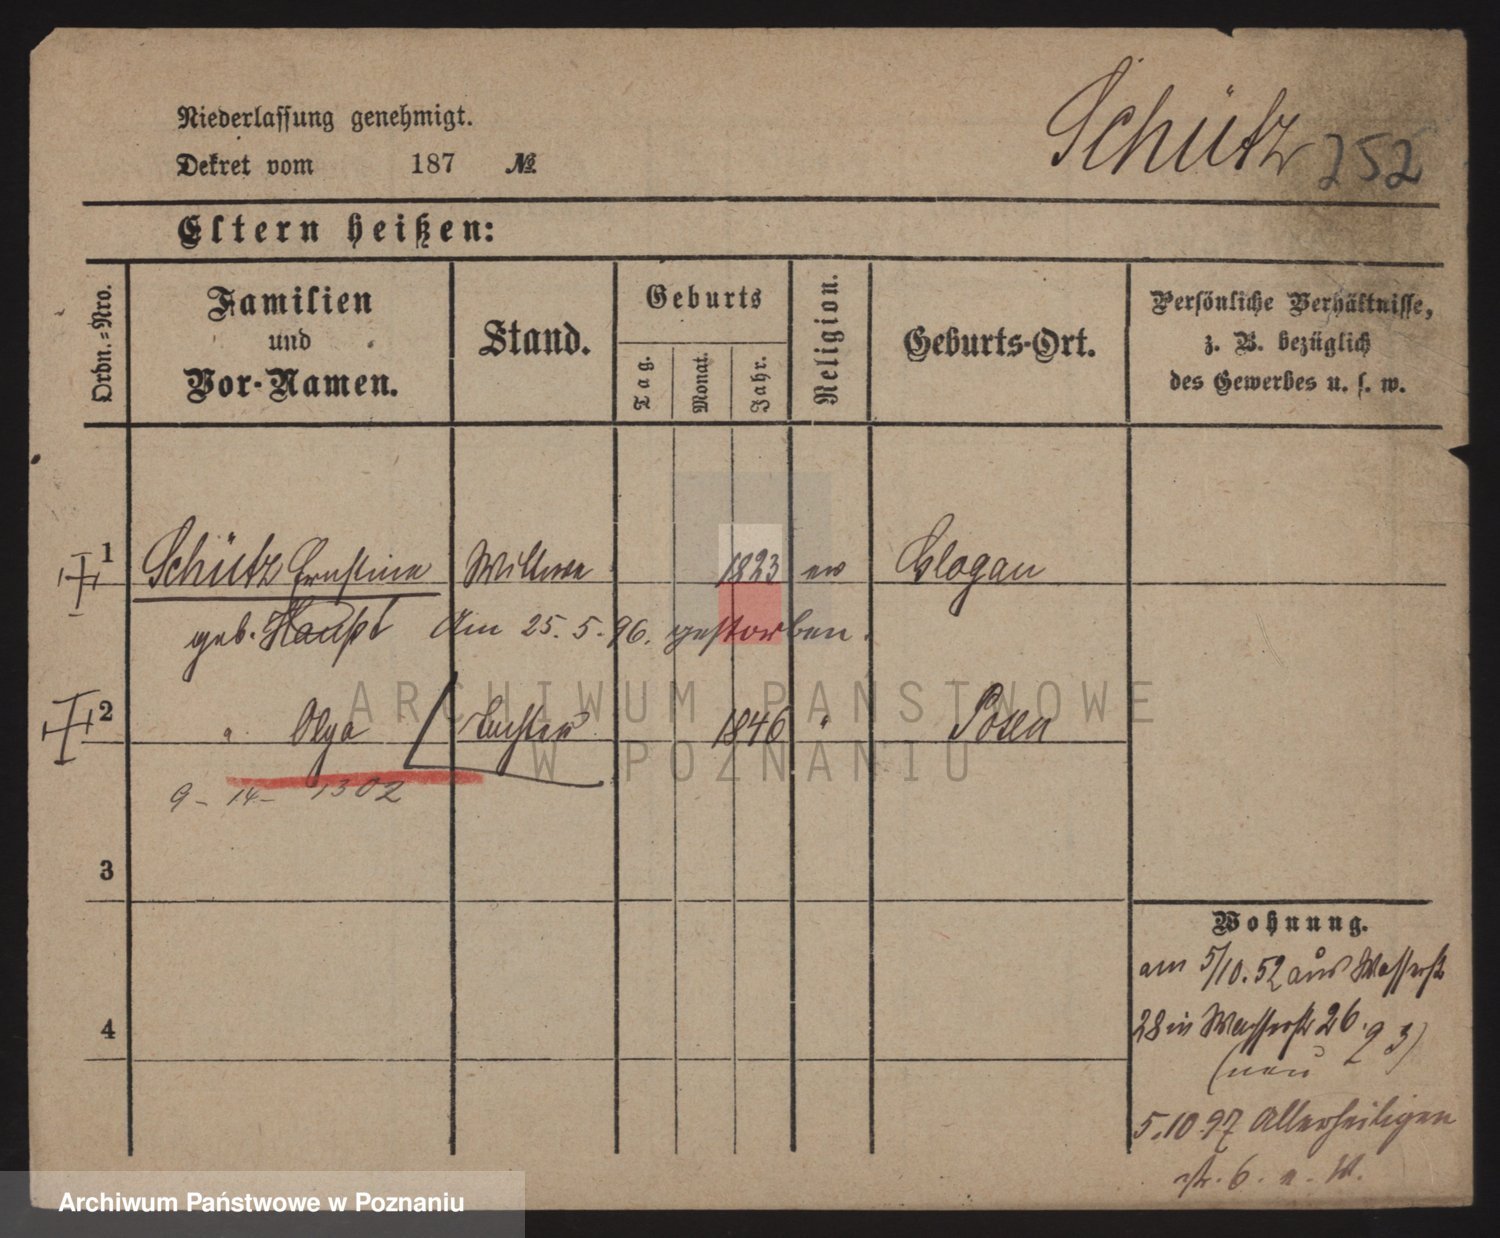 Schütz 252
Niederlassung genehmigt.
Dekret vom 187 №
Eltern heißen:
Ordn.-Nro.
Familien
und
Vor-Namen.
Stand.
Geburts
Tag.
Monat.
Jahr.
Religion.
Geburts-Ort.
Persönliche Verhältnisse,
z. B. bezüglich
des Gewerbes u. s. w.
1 Schütz Ernstine Wittwe 1823 ev Glogau
geb. Haupt Am 25. 5. 96. gestorben.
2 " Olga Tochter 1846 " Posen
9 - 14 - 1302
3
4
Wohnung.
am 5/10. 52 aus Wasserstr
28 in Wasserstr 26.
(neu 23)
5.10.97 Allerheiligen
str. 6. n. W.
ARCHIWUM PAŃSTWOWE
W POZNANIU
Archiwum Państwowe w Poznaniu